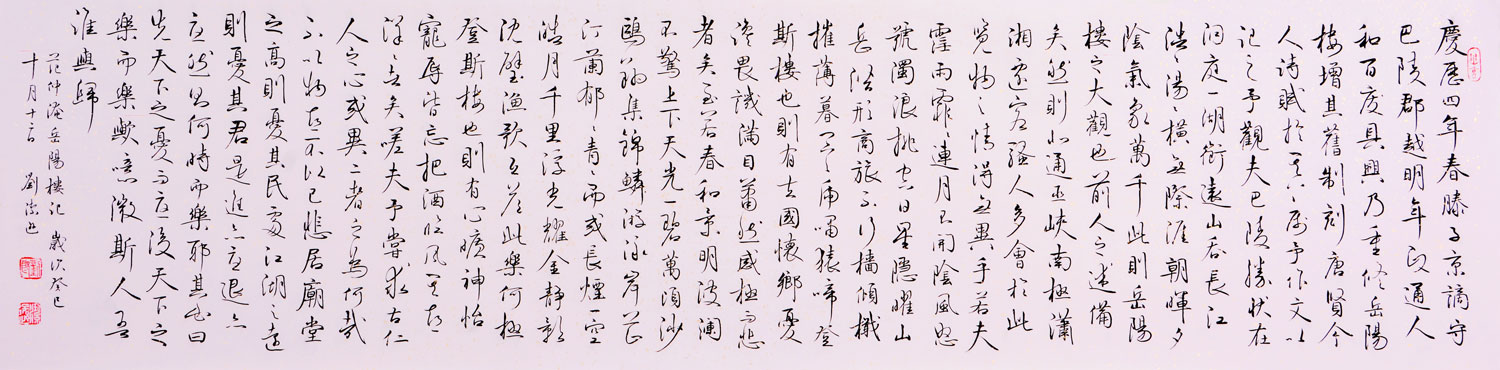 慶歷四年春滕子京謫守
巴陵郡越明年政通人
和百廢具興乃重修岳陽
樓增其舊制刻唐賢今
人詩賦於其上屬予作文以
記之予觀夫巴陵勝狀在
洞庭一湖銜遠山吞長江
浩浩湯湯橫無際涯朝暉夕
陰氣象萬千此則岳陽
樓之大觀也前人之述備
矣然則北通巫峽南極瀟
湘遷客騷人多會於此
覽物之情得無異乎若夫
霪雨霏霏連月不開陰風怒
號濁浪排空日星隱曜山
岳潛形商旅不行檣傾檝
摧薄暮冥冥虎嘯猿啼登
斯樓也則有去國懷鄉憂
讒畏譏滿目蕭然感極而悲
者矣至若春和景明波瀾
不驚上下天光一碧萬頃沙
鷗翔集錦鱗游泳岸芷
汀蘭郁郁青青而或長煙一空
皓月千里浮光耀金靜影
沈璧漁歌互答此樂何極
登斯樓也則有心曠神怡
寵辱皆忘把酒臨風其喜
洋洋者矣嗟夫予嘗求古仁
人之心或異二者之為何哉
不以物喜不以己悲居廟堂
之高則憂其民處江湖之遠
則憂其君是進亦憂退亦
憂然則何時而樂耶其必曰
先天下之憂而憂後天下之
樂而樂歟噫微斯人吾
誰與歸
范仲淹岳陽樓記 歲次癸巳
十月十言 劉